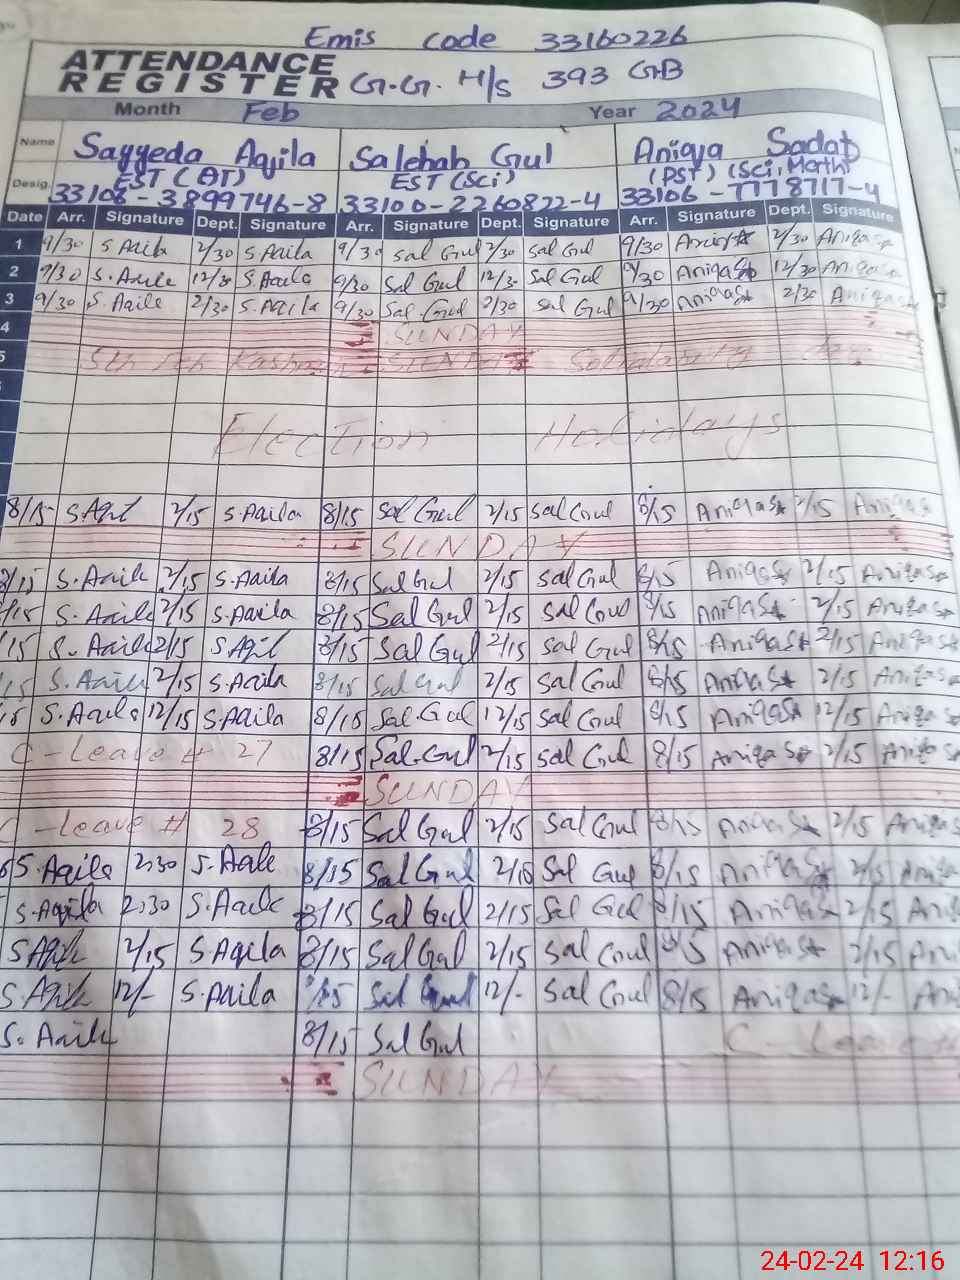 Emis code 33160226
ATTENDANCE
REGISTER G.G. H/S 393 GB
Month Feb Year 2024
Name Sayyeda Aqila Salehah Gul Aniqa Sadat
Desig. EST (AT) EST (Sci) (PST) (Sci, Math)
33106-3899746-8 33100-2260822-4 33106-7778717-4
Date Arr. Signature Dept. Signature Arr. Signature Dept. Signature Arr. Signature Dept. Signature
1 9/30 S Aqila 2/30 S. Aqila 9/30 Sal Gul 2/30 Sal Gul 9/30 Aniqa S 2/30 Aniqa S
2 9/30 S. Aqila 12/30 S. Aqila 9/30 Sal Gul 12/30 Sal Gul 9/30 Aniqa S 12/30 Aniqa S
3 9/30 S. Aqila 2/30 S. Aqila 9/30 Sal Gul 2/30 Sal Gul 9/30 Aniqa S 2/30 Aniqa S
4 SUNDAY
5 5th Feb Kashmir SUNDAY Solidarity day
Election Holidays
8/15 S. Aqil 2/15 S. Aqila 8/15 Sal Gul 2/15 Sal Gul 8/15 Aniqa S 2/15 Aniqa
SUNDAY
8/15 S. Aqila 2/15 S. Aqila 8/15 Sal Gul 2/15 Sal Gul 8/15 Aniqa S 2/15 Aniqa S
/15 S. Aqila 2/15 S. Aqila 8/15 Sal Gul 2/15 Sal Gul 8/15 Aniqa S 2/15 Aniqa S
/15 S. Aqila 2/15 S Aqil 8/15 Sal Gul 2/15 Sal Gul 8/15 Aniqa S 2/15 Aniqa S
15 S. Aqila 2/15 S. Aqila 8/15 Sal Gul 2/15 Sal Gul 8/15 Aniqa S 2/15 Aniqa S
15 S. Aqila 12/15 S. Aqila 8/15 Sal Gul 12/15 Sal Gul 8/15 Aniqa S 12/15 Aniqa S
C-Leave # 27 8/15 Sal Gul 2/15 Sal Gul 8/15 Aniqa S 2/15 Aniqa S
SUNDAY
C-Leave # 28 8/15 Sal Gul 2/15 Sal Gul 8/15 Aniqa S 2/15 Aniqa S
S. Aqila 2:30 S. Aqila 8/15 Sal Gul 2/15 Sal Gul 8/15 Aniqa S 2/15 Aniqa
S. Aqila 2:30 S. Aqila 8/15 Sal Gul 2/15 Sal Gul 8/15 Aniqa S 2/15 Aniqa
S Aqil 2/15 S Aqila 8/15 Sal Gul 2/15 Sal Gul 8/15 Aniqa S 2/15 Ani
S. Aqil 12/- S. Aqila Sal Gul 12/- Sal Gul 8/15 Aniqa S 12/- Ani
S. Aqila 8/15 Sal Gul C-Leave #
SUNDAY
24-02-24 12:16